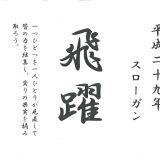 平成二十九年
スローガン
飛躍
一つひとつを一人ひとりが見直して
皆の力を結集し、実りの果実を摘み
取ろう。